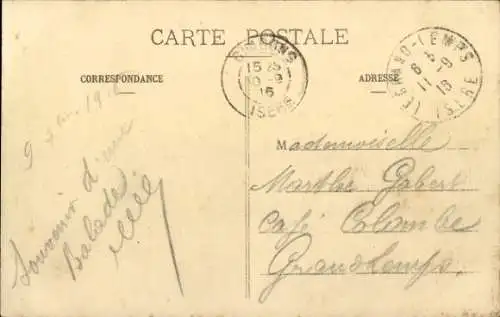 CARTE POSTALE
CORRESPONDANCE
ADRESSE
15 25
10 -9
16
ISERE
LE GRAND-LEMPS
8 5
11 -9
16
ISERE
9 7bre 191
Souvenir d'une
Balade
Mademoiselle
Marthe Gabert
Café Colombe
Grandlemps